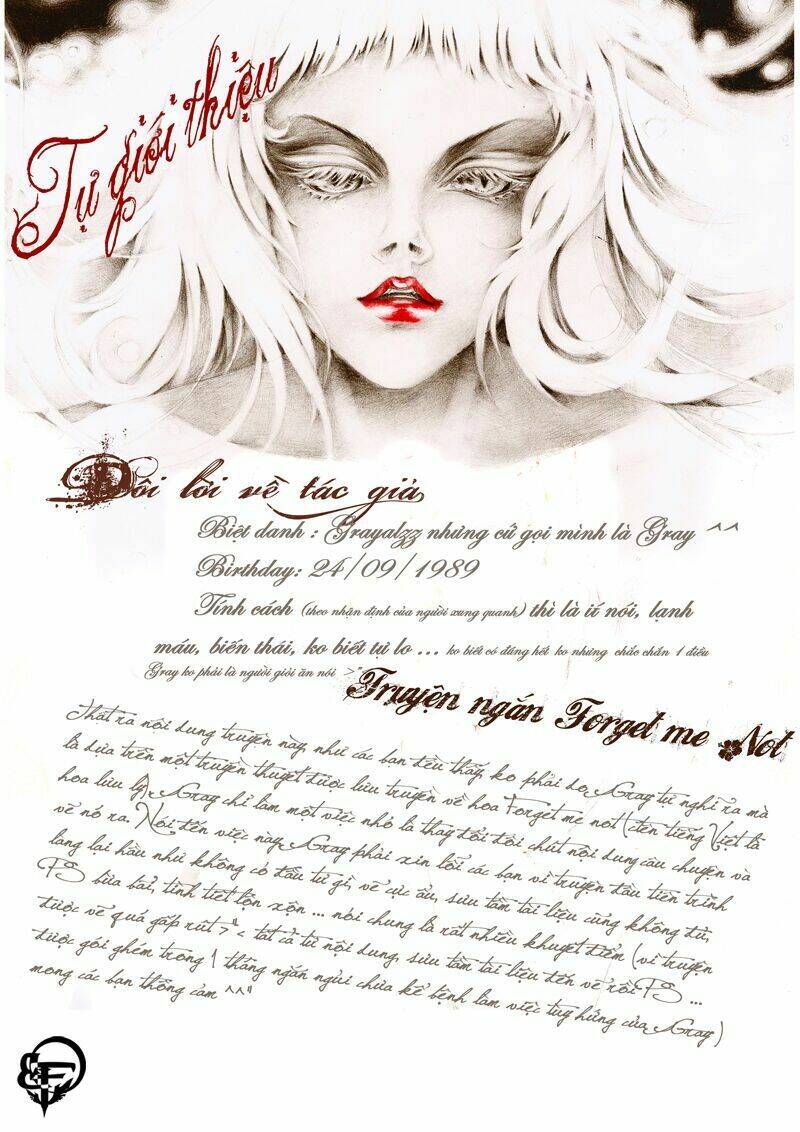 Tự giới thiệu
Đôi lời về tác giả
Biệt danh : Grayalzz nhưng cứ gọi mình là Gray ^^
Birthday: 24/09/1989
Tính cách (theo nhận định của người xung quanh) thì là ít nói, lạnh
máu, biến thái, ko biết tự lo ... ko biết có đúng hết ko nhưng chắc chắn 1 điều
Gray ko phải là người giỏi ăn nói >"
Truyện ngắn Forget me Not
Thật ra nội dung truyện này, như các bạn đều thấy, ko phải do Gray tự nghĩ ra mà
là dựa trên một truyền thuyết được lưu truyền về hoa Forget me not (tên tiếng Việt là
hoa lưu ly). Gray chỉ làm một việc nhỏ là thay đổi đôi chút nội dung câu chuyện và
vẽ nó ra. Nói đến việc này, Gray phải xin lỗi các bạn vì truyện đầu tiên trình
làng lại hầu như không có đầu tư gì, vẽ cực ẩu, sưu tầm tài liệu cũng không đủ,
PS bừa bãi, tình tiết lộn xộn ... nói chung là rất nhiều khuyết điểm (vì truyện
được vẽ quá gấp rút >"< tất cả từ nội dung, sưu tầm tài liệu đến vẽ rồi PS ...
được gói ghém trong 1 tháng ngắn ngủi chưa kể bệnh làm việc tùy hứng của Gray)
mong các bạn thông cảm ^^"